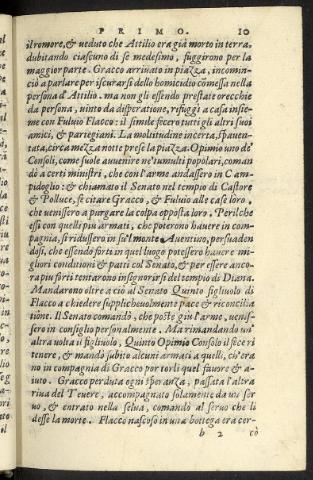 PRIMO. 10
il romore, & veduto che Attilio era già morto in terra,
dubitando ciascuno di se medesimo, fuggirono per la
maggior parte. Gracco arrivato in piazza, incomin-
ciò a parlare per iscusarsi dello homicidio cōmessa nella
persona d'Attilio. ma non gli essendo prestate orecchie
da persona, vinto da disperatione, rifuggì a casa insie-
me con Fulvio Flacco: il simile fecero tutti gli altri suoi
amici, & partegiani. La moltitudine incerta, spaven-
tata, circa mezza notte prese la piazza. Opimio uno de'
Consoli, come suole avvenire ne' tumulti popolari, coman
dò a certi ministri, che con l'arme andassero in Cam-
pidoglio: & chiamato il Senato nel tempio di Castore
& Polluce, fe citare Gracco, & Fulvio alle case loro,
che venissero a purgare la colpa opposta loro. Per ilche
essi con quelli piu armati, che poterono havere in com-
pagnia, si ridussero in su'l monte Aventino, persuaden
dosi, che essendo forti in quel luogo potessero havere mi-
gliori conditioni & patti col Senato, & per essere anco-
ra piu forti tentarono insignorirsi del tempio di Diana.
Mandarono oltre a ciò al Senato Quinto figliuolo di
Flacco a chiedere supplichevolmente pace & riconcilia
tione. Il Senato comandò, che poste giu l'arme, venis-
sero in consiglio personalmente. Ma rimandando un'
altra volta il figliuolo, Quinto Opimio Consolo il fece ri
tenere, & mandò subito alcuni armati a quelli, ch'era
no in compagnia di Gracco per torli quel favore & a-
iuto. Gracco perduta ogni speranza, passata l'altra
riva del Tevere, accompagnato solamente da un ser
vo, & entrato nella selva, comandò al servo che li
desse la morte. Flacco nascoso in una bottega era cer-
b 2 cò